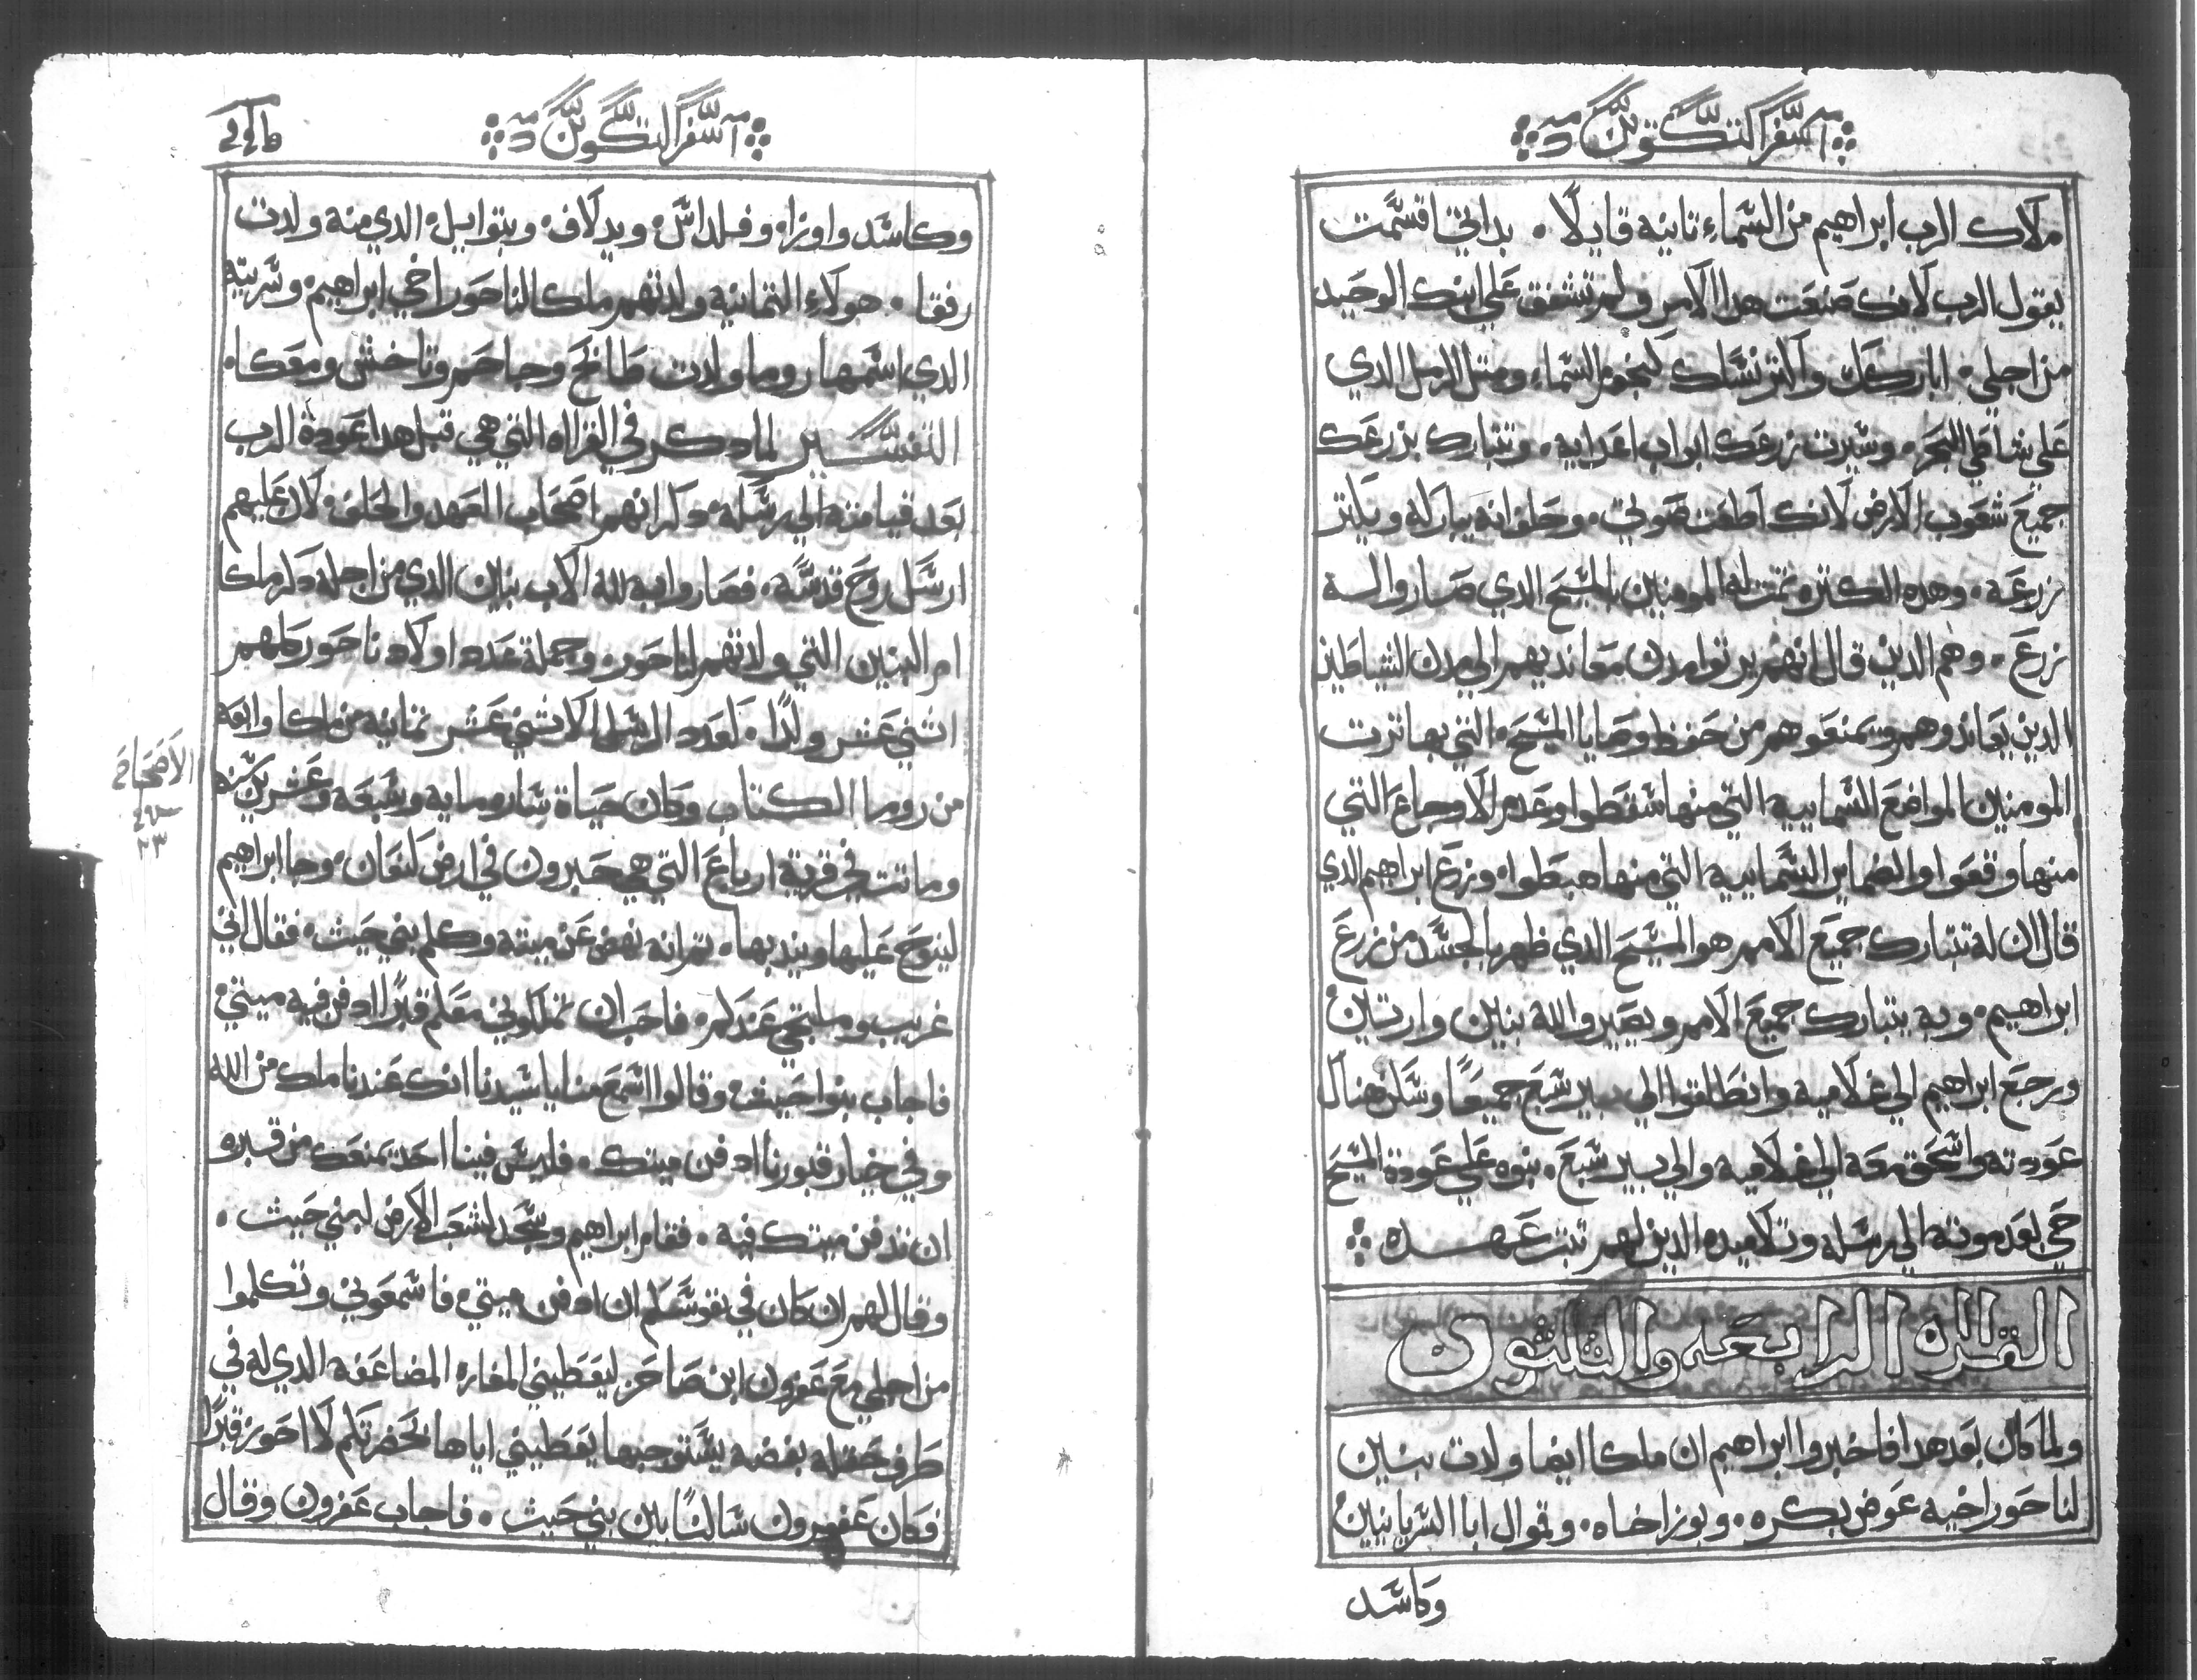 سفر التكوين
ملاك الرب ابراهيم من السماء تانيه قايلا ٠ بداتي اقسمت
يقول الرب لانك صنعت هدا الامر ولم تشفق علي ابنك الوحيد
من اجلي ٠ اباركك واكتر نسلك كنجوم السماء ومتل الرمل الدي
علي شاطي البحر ٠ وسيرت زرعك ابواب اعدايه ٠ وتتبارك بزرعك
جميع شعوب الارض لانك اطعت صوتي ٠ وحلف انه يباركه ويكتر
زرعه ٠ وهده الكتره تمت له المومنين بالمسيح الدي صاروا له
زرع ٠ وهم الدين قال انهم يرتوا مدن معانديهم الي مدن الشياطين
الدين يعاندوهم ويمنعوهم من حفظ وصايا المسيح ٠ التي بها ترت
المومنين المواضع السماييه التي منها سقطوا وعدم الاوجاع التي
منها وقعوا والضماير السماييه التي منها هبطوا ٠ وزرع ابراهيم الدي
قال ان له تتبارك جميع الامم هو المسيح الدي ظهر بالجسد من زرع
ابراهيم ٠ وبه يتبارك جميع الامم ويصيروا لله بنين وارتين
ورجع ابراهيم الي غلاميه وانطلقوا الي بير سبع جميعا وسكن هناك
عودته واسحق معه الي غلاميه والي بير سبع ٠ بنوه علي عودة المسيح
حي بعد موته الي رسله وتلاميده الدين لهم تبت عهده
القراه الرابعه والتلتون
ولما كان بعد هدا فاخبروا ابراهيم ان ملكا ايضا ولدت بنين
لناحور اخيه عوض بكره ٠ وبوز اخاه ٠ وقموال ابا السريانيين
وكاسد
سفر التكوين
وكاسد واوزاه وفلداس ٠ ويدلاف ٠ وبتوايل ٠ الدي منه ولدت
رفقا ٠ هولاء التمانيه ولدتهم ملكا لناحور اخي ابراهيم ٠ وسريته
الدي اسمها روما ولدت طابخ وجاحم وتاخش ومعكاه
التفسير لما دكر في القراه التي هي قبل هدا عودة الرب
بعد قيامته الي رسله ٠ دكر انهم اصحاب العهد والحلف ٠ لان عليهم
ارسل روح قدسه ٠ فصاروا به لله الاب بنين الدي من اجله دكر ملكا
ام البنين التي ولدتهم لناحور ٠ وجملة عدد اولاد ناحور كلهم
اتني عشر ولدا ٠ كعدد الرسل الاتني عشر تمانيه من ملكا واربعه
من روما الكتاب وكان حياة ساره مايه وسبعه وعشرين سنه
وماتت في قرية ارباع التي هي حبرون في ارض كنعان ٠ وجا ابراهيم
لينوح عليها ويندبها ٠ تم انه نهض عن ميته وكلم بني حيث ٠ فقال اني
غريب وملتجي عندكم ٠ فاحب ان تملكوني معكم قبرا ادفن فيه ميتي
فاجاب بنوا حيث ٠ وقالوا اسمع منا يا سيدنا انك عندنا ملك من الله
وفي خيار قبورنا ادفن ميتك ٠ فليس فينا احد يمنعك من قبره
ان تدفن ميتك فيه ٠ فقام ابراهيم وسجد لشعب الارض لبني حيث ٠
وقال لهم ان كان في نفوسكم ان ادفن ميتي ٠ فاسمعوني وتكلموا
من اجلي مع عفرون ابن صاحر ليعطيني المغاره المضاعفه الدي له في
طرف حقله بفضه يستوجبها يعطيني اياها بحضرتكم لااحوز قبرا
فكان عفرون سالسا بين بني حيث ٠ فاجاب عفرون وقال
الاصحاح
٢٣